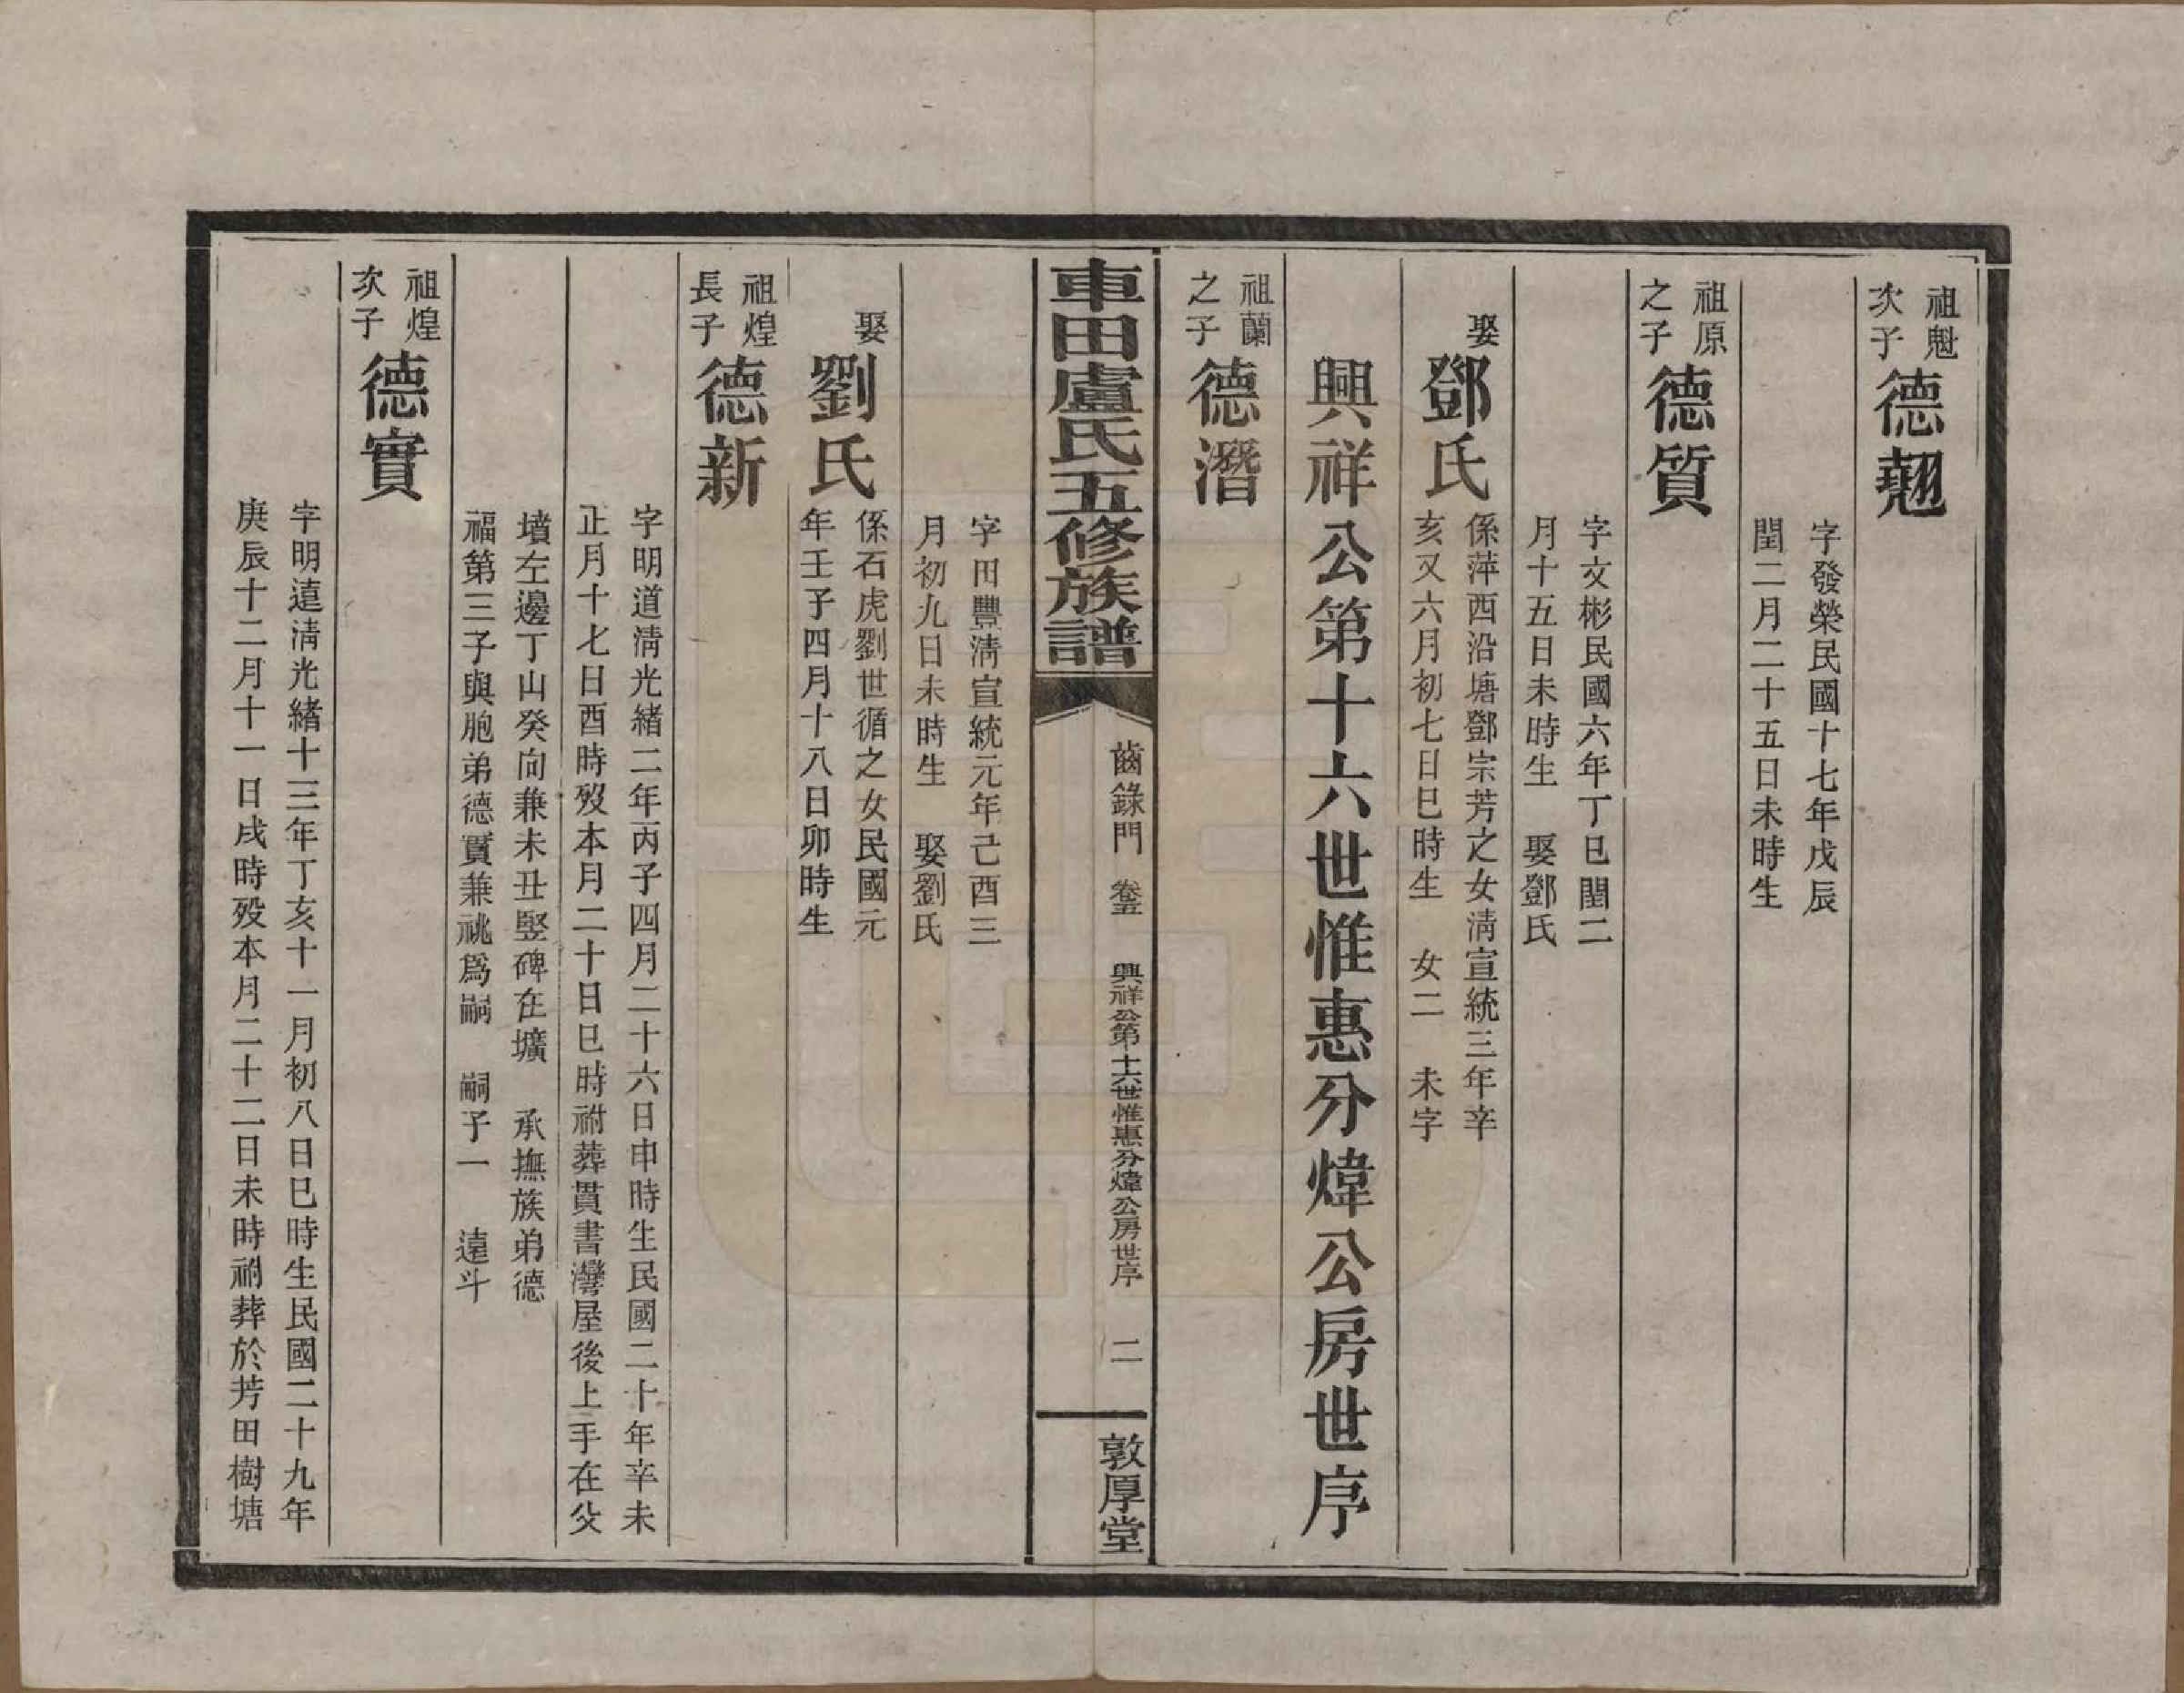 祖魁
次子
德翹
字發榮民國十七年戊辰
閏二月二十五日未時生
祖原
之子
德質
字文彬民國六年丁巳閏二
月十五日未時生　娶鄧氏
娶
鄧氏
係萍西沿塘鄧宗芳之女淸宣統三年辛
亥又六月初七日巳時生　女二　未字
興祥公第十六世惟惠分煒公房世序
祖蘭
之子
德潛
車田盧氏五修族譜
齒錄門　卷五　興祥公第十六世惟惠分煒公房世序　二
敦厚堂
字田豐淸宣統元年己酉三
月初九日未時生　娶劉氏
娶
劉氏
係石虎劉世循之女民國元
年壬子四月十八日卯時生
祖煌
長子
德新
字明道淸光緖二年丙子四月二十六日申時生民國二十年辛未
正月十七日酉時歿本月二十日巳時祔葬貫書灣屋後上手在父
墳左邊丁山癸向兼未丑竪碑在壙　承撫族弟德
福第三子與胞弟德實兼祧爲嗣　嗣子一　遠斗
祖煌
次子
德實
字明遠淸光緖十三年丁亥十一月初八日巳時生民國二十九年
庚辰十二月十一日戌時歿本月二十二日未時祔葬於芳田樹塘